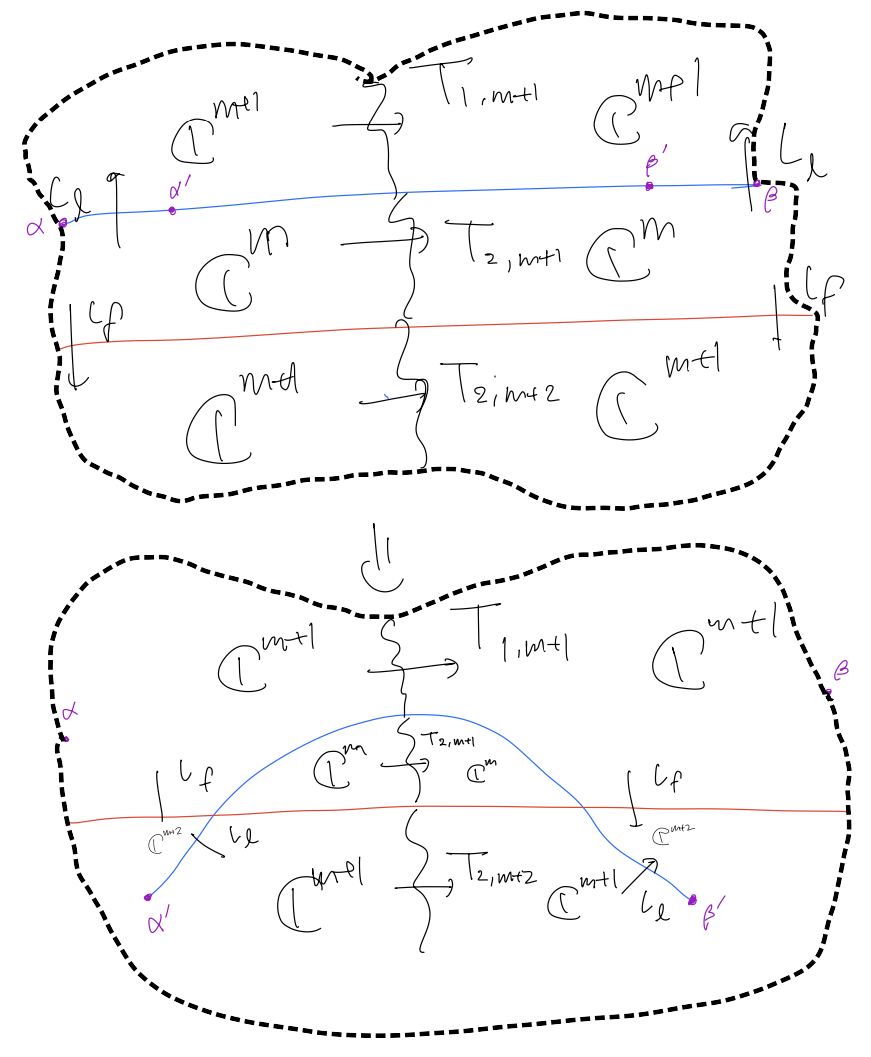 T₁,ₘ₊₁
ℂᵐ⁺¹ ℂᵐ⁺¹
α ι_l α' β' β ι_l
ℂᵐ T₂,ₘ₊₁ ℂᵐ
ι_f ι_f
ℂᵐ⁺¹ T₂,ₘ₊₂ ℂᵐ⁺¹
⇓
ℂᵐ⁺¹ T₁,ₘ₊₁ ℂᵐ⁺¹
α β
ℂᵐ T₂,ₘ₊₁ ℂᵐ
ι_f ι_f
ℂᵐ⁺² ι_l ℂᵐ⁺²
ℂᵐ⁺¹ T₂,ₘ₊₂ ℂᵐ⁺¹ ι_l
α' β'